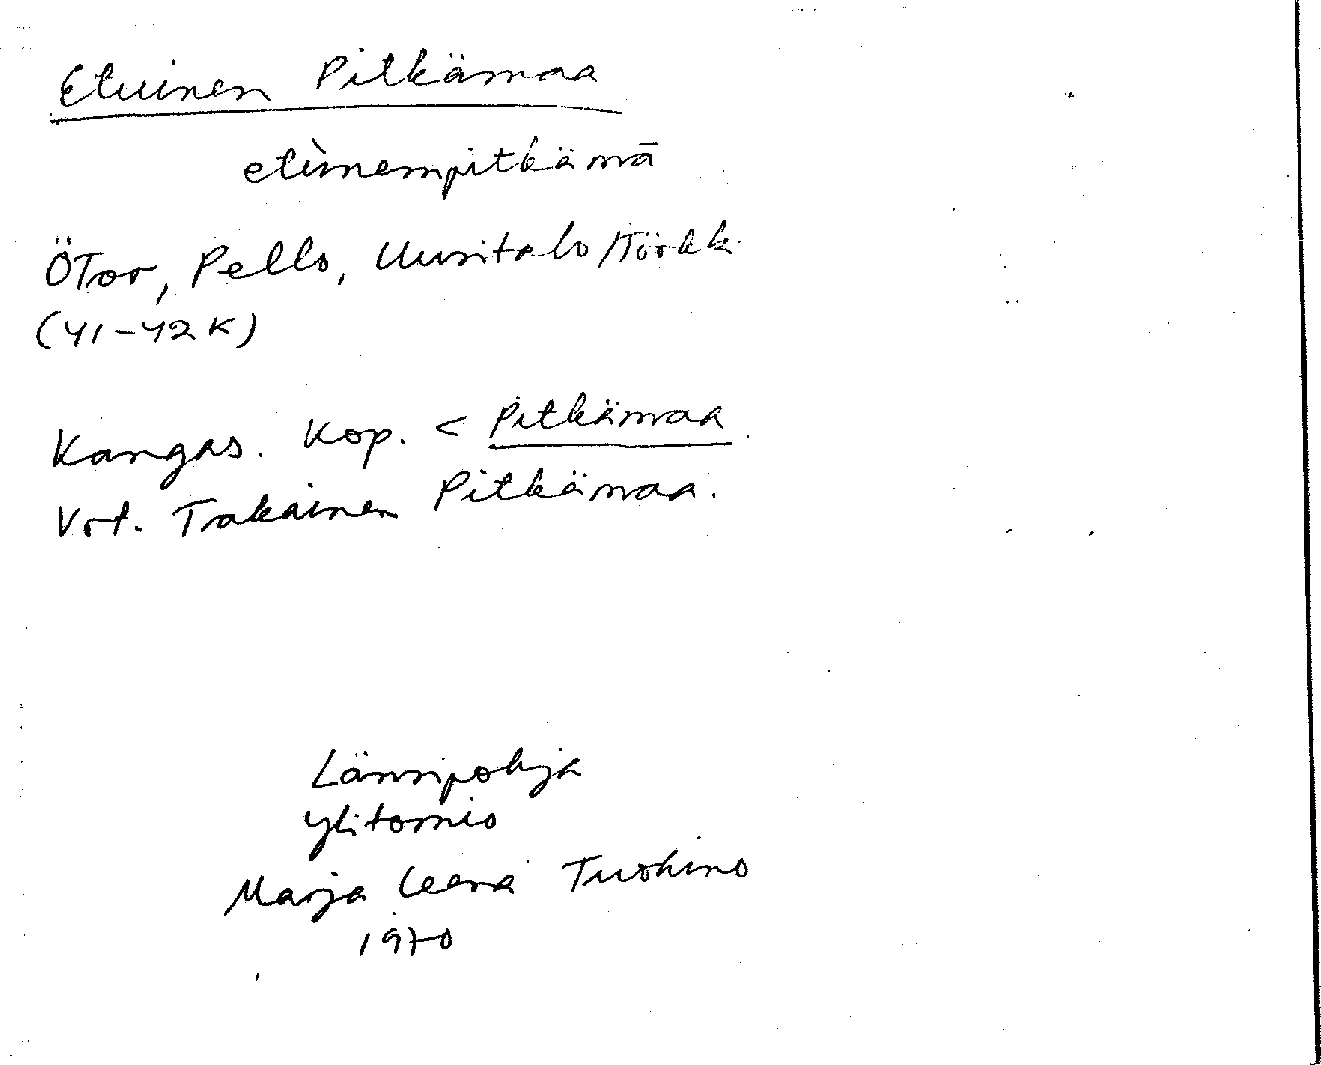 Etuinen Pitkämaa
etùinempitkämā
ÖTor, Pello, Uusitalo/Törkk.
(41-42K)
Kangas. Kop. < Pitkämaa.
Vrt. Takainen Pitkämaa.
Länsipohja
Ylitornio
Marja Leena Tuohino
1970